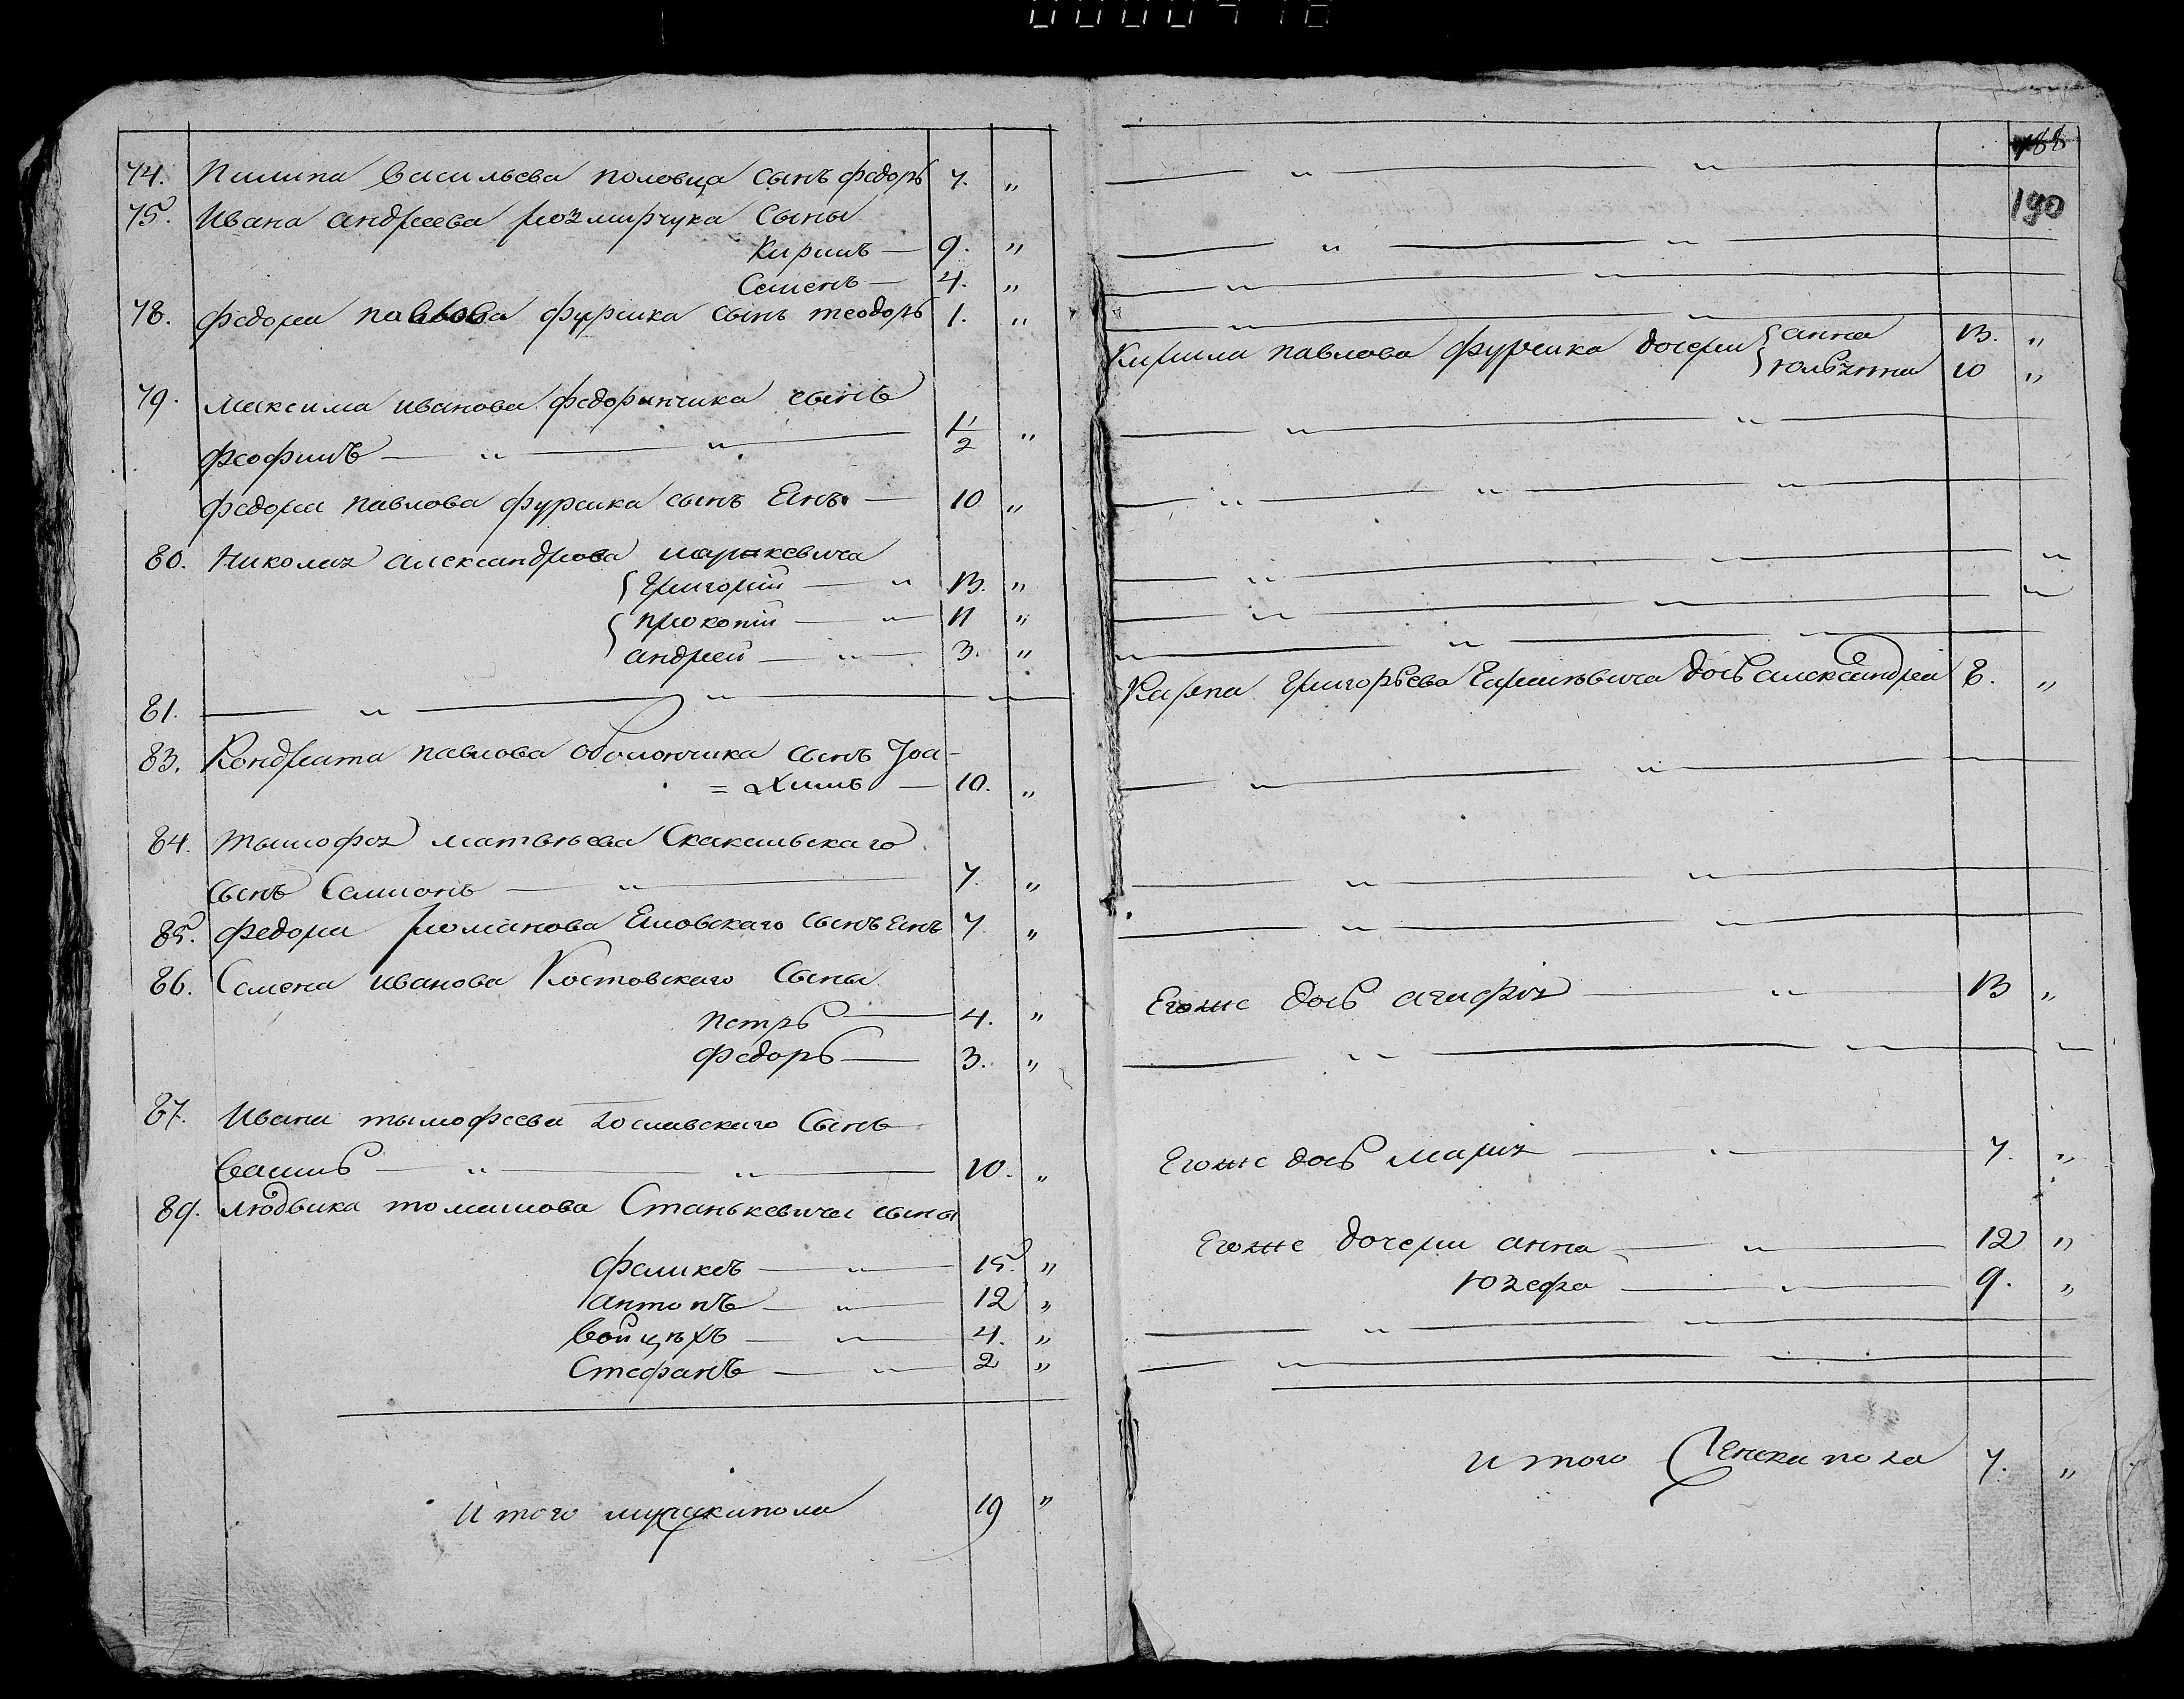 74. Пилипа Васильева Половца сынъ Федоръ 7. „
75. Ивана Андреева Розмирчука сыны
Кирилъ — 9. „
Семенъ — 4. „
78. Федора Павлова Фурсика сынъ Теодоръ 1. „
79. Максима Иванова Федоринчика сынъ
Феофилъ — „ — „ — 1/2 „
Федора Павлова Фурсика сынъ Янъ — 10 „
80. Николая Александрова
Григорий — „ 13. „
Прокопий — „ — 11 „
Андрей — „ — 3. „
81. — „ — „ —
83. Кондрата Павлова Оболончика сынъ Іоа-
= химъ — 10. „
84. Тымофея Матвѣева Скакальскаго
сынъ Самионъ — „ — 7. „
85. Федора Романова сынъ Янъ 7. „
86. Семена Иванова Костовскаго сыны
Петръ — 4. „
Федоръ — 3. „
87. Ивана Тымофеева сынъ
Василь — „ — „ — 10. „
89. Людвика Томашова Станькевича сыны
Феликсъ — „ — 15. „
Антонъ — „ — 12 „
Войцѣхъ — „ — 4. „
Стефанъ — „ — 2 „
Итого мужска пола 19 „
188
190
— „ — „ —
— „ — „ —
— „ — „ —
— „ — „ —
Кирила Павлова Фурсика дочери Анна 13. „
10 „
— „ — „ —
— „ — „ — „ —
— „ — „ — „
— „ — „ — „
— „ — „ —
Карпа Григорьева дочь Александра 8. „
— „ — „ —
— „ — „ —
— „ — „ —
Егоже дочь Агафия — „ — 13 „
— „ — „ — „
Егоже дочь Мария — „ — 7. „
Егоже дочери Анна — „ — 12 „
Юзефа — „ — 9. „
— „ — „ —
— „ — „ —
Итого женска пола 7. „